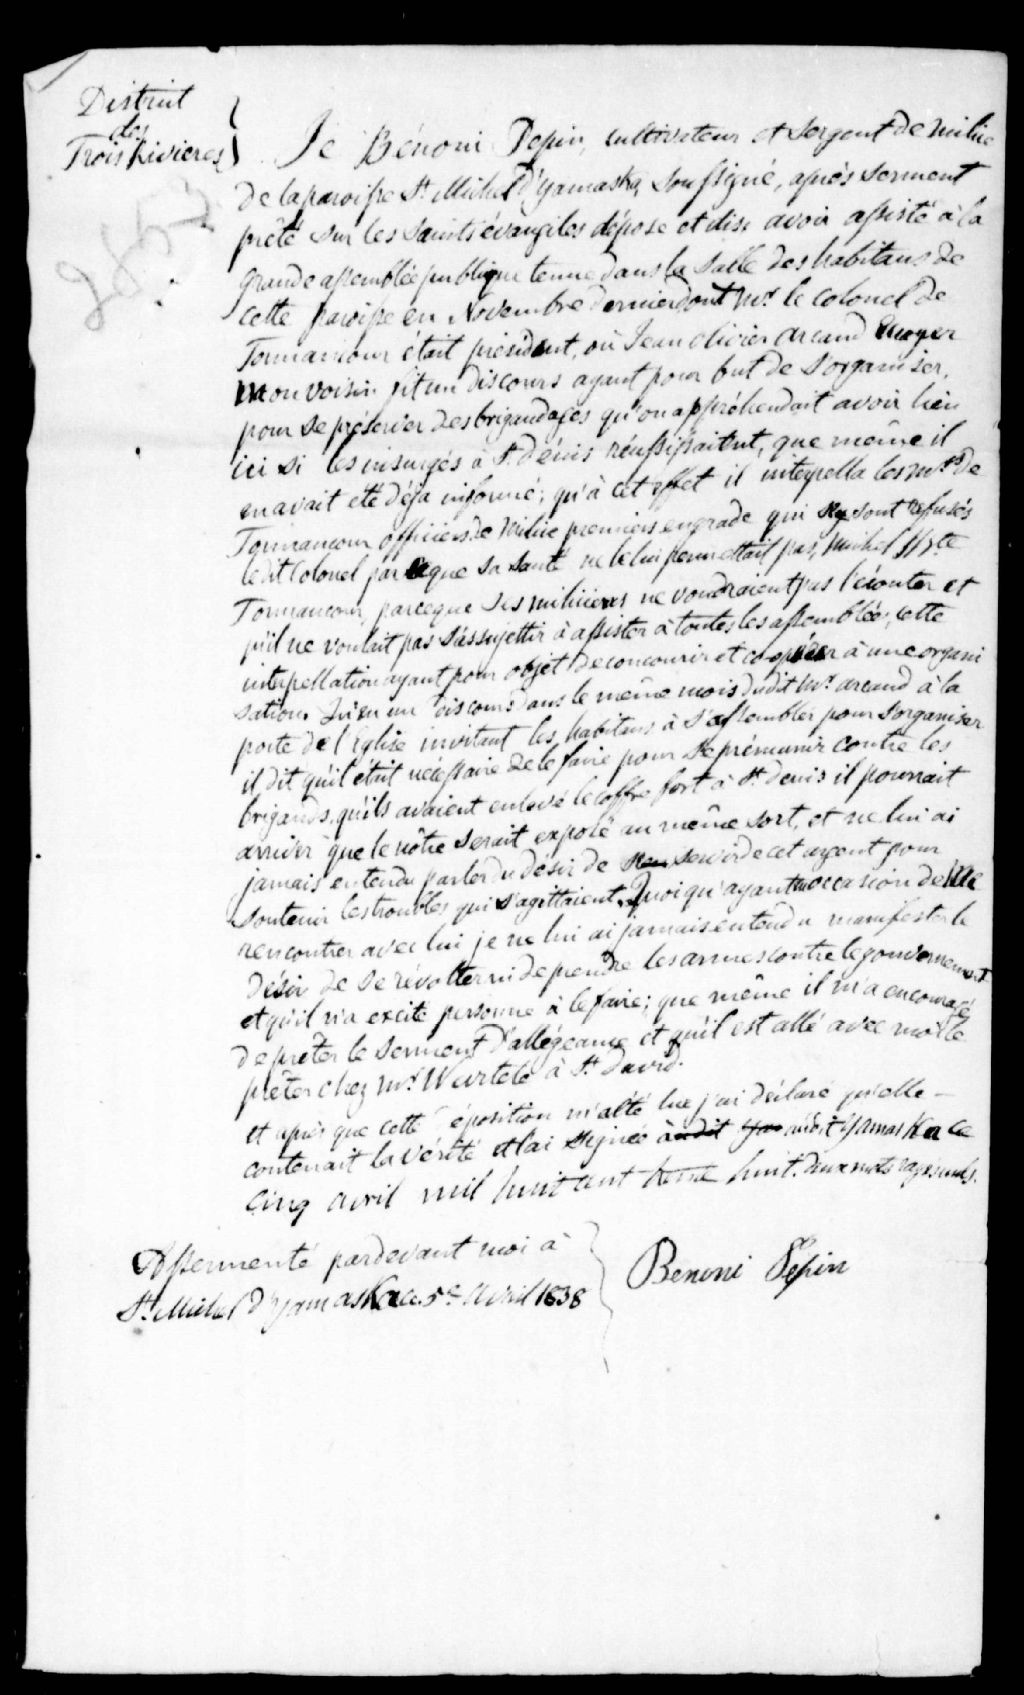 District
des
Trois Rivieres
2852
Je Bénoni Pepin, cultivateur et Sergent de milice
de la paroisse St. Michel d'Yamaska, Soussigné, après serment
prêté sur les saints évangiles dépose et dis: avoir assisté à la
grande assemblée publique tenue dans la Salle des habitans de
cette paroisse en Novembre dernier dont Mr. le Colonel de
Tonnancour était président, où Jean olivier arcand Ecuyer
mon voisin fit un discours ayant pour but de s'organiser,
pour se préserver des brigandages qu'on appréhendait avoir lieu
ici si les insurgés à St. Dénis réussissaitent, que même il
en avait été déja informé; qu'à cet effet il interpella les Mrs. de
Tonnancour officiers de milice premiers en grade qui sont refusés
ledit Colonel parceque sa santé ne le lui permettait pas, Michel
Tonnancour, parceque ses miliciens ne voudraient pas l'écouter et
qu'il ne voulait pas s'assujettir à assister à toutes les assemblée; cette
interpellation ayant pour objet de concourir et co-opérer à une organi
sation. Qu'en un discours dans le même mois dudit Mr. arcand à la
porte de l'Eglise invitant les habitans à s'assembler pour s'organiser
il dit qu'il était nécessaire de le faire pour se prémunir contre les
brigands, qu'ils avaient enlevé le coffre fort à St. denis il pourrait
arriver que le nôtre serait exposé au même sort, et ne lui ai
jamais entendu parler du désir de servir de cet argent pour
soutenir les troubles qui s'agittaient. Quoiqu'ayant eu occasion de me
rencontrer avec lui je ne lui ai jamais entendu manifester le
désir de se révolter ni de prendre les armes contre le gouvernement
et qu'il n'a excité personne à le faire; que même il m'a encouragé
de prêter le serment d'allégeance et qu'il est allé avec moi le
prêter chez Mr. Wurtele à St. David.
et après que cette déposition m'a été lue j'ai déclaré qu'elle –
contenait la vérité et l'ai signée audit Yamaska ce
Cinq avril mil huit cent trente huit. deux mots rayés nuls.
Assermenté pardevant moi à
St. Michel d'Yamaska ce 5e Avril 1838
Benoni Pepin